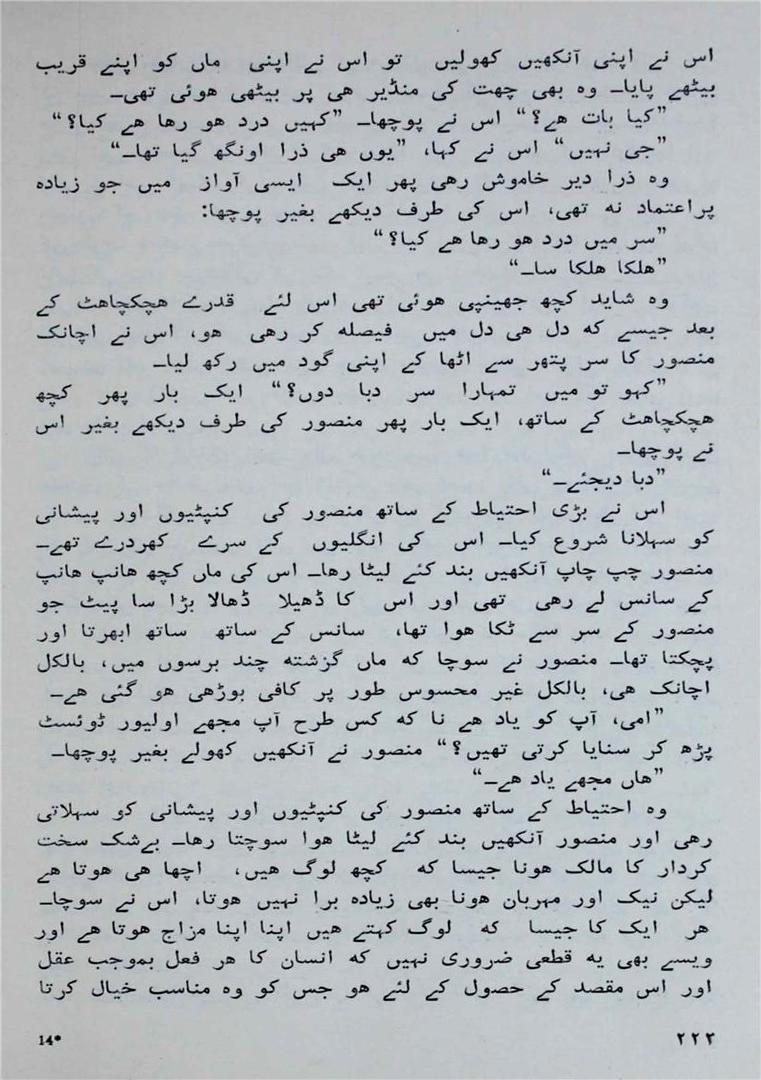 اس نے اپنی آنکھیں کھولیں تو اس نے اپنی ماں کو اپنے قریب
بیٹھے پایا۔ وہ بھی چھت کی منڈیر ھی پر بیٹھی ھوئی تھی۔
”کیا بات ھے؟“ اس نے پوچھا۔ ”کہیں درد ھو رھا ھے کیا؟“
”جی نہیں“ اس نے کہا، ”یوں ھی ذرا اونگھ گیا تھا۔“
وہ ذرا دیر خاموش رھی پھر ایک ایسی آواز میں جو زیادہ
پراعتماد نہ تھی، اس کی طرف دیکھے بغیر پوچھا:
”سر میں درد ھو رھا ھے کیا؟“
”ھلکا ھلکا سا۔“
وہ شاید کچھ جھینپی ھوئی تھی اس لئے قدرے ھچکچاھٹ کے
بعد جیسے کہ دل ھی دل میں فیصلہ کر رھی ھو، اس نے اچانک
منصور کا سر پتھر سے اٹھا کے اپنی گود میں رکھ لیا۔
”کہو تو میں تمہارا سر دبا دوں؟“ ایک بار پھر کچھ
ھچکچاھٹ کے ساتھ، ایک بار پھر منصور کی طرف دیکھے بغیر اس
نے پوچھا۔
”دبا دیجئے۔“
اس نے بڑی احتیاط کے ساتھ منصور کی کنپٹیوں اور پیشانی
کو سہلانا شروع کیا۔ اس کی انگلیوں کے سرے کھردرے تھے۔
منصور چپ چاپ آنکھیں بند کئے لیٹا رھا۔ اس کی ماں کچھ ھانپ ھانپ
کے سانس لے رھی تھی اور اس کا ڈھیلا ڈھالا بڑا سا پیٹ جو
منصور کے سر سے ٹکا ھوا تھا، سانس کے ساتھ ساتھ ابھرتا اور
پچکتا تھا۔ منصور نے سوچا کہ ماں گزشتہ چند برسوں میں، بالکل
اچانک ھی، بالکل غیر محسوس طور پر کافی بوڑھی ھو گئی ھے۔
”امی، آپ کو یاد ھے نا کہ کس طرح آپ مجھے اولیور ٹوئسٹ
پڑھ کر سنایا کرتی تھیں؟“ منصور نے آنکھیں کھولے بغیر پوچھا۔
”ھاں مجھے یاد ھے۔“
وہ احتیاط کے ساتھ منصور کی کنپٹیوں اور پیشانی کو سہلاتی
رھی اور منصور آنکھیں بند کئے لیٹا ھوا سوچتا رھا۔ بےشک سخت
کردار کا مالک ھونا جیسا کہ کچھ لوگ ھیں، اچھا ھی ھوتا ھے
لیکن نیک اور مہربان ھونا بھی زیادہ برا نہیں ھوتا، اس نے سوچا۔
ھر ایک کا جیسا کہ لوگ کہتے ھیں اپنا اپنا مزاج ھوتا ھے اور
ویسے بھی یہ قطعی ضروری نہیں کہ انسان کا ھر فعل بموجب عقل
اور اس مقصد کے حصول کے لئے ھو جس کو وہ مناسب خیال کرتا
14* ۲۲۳